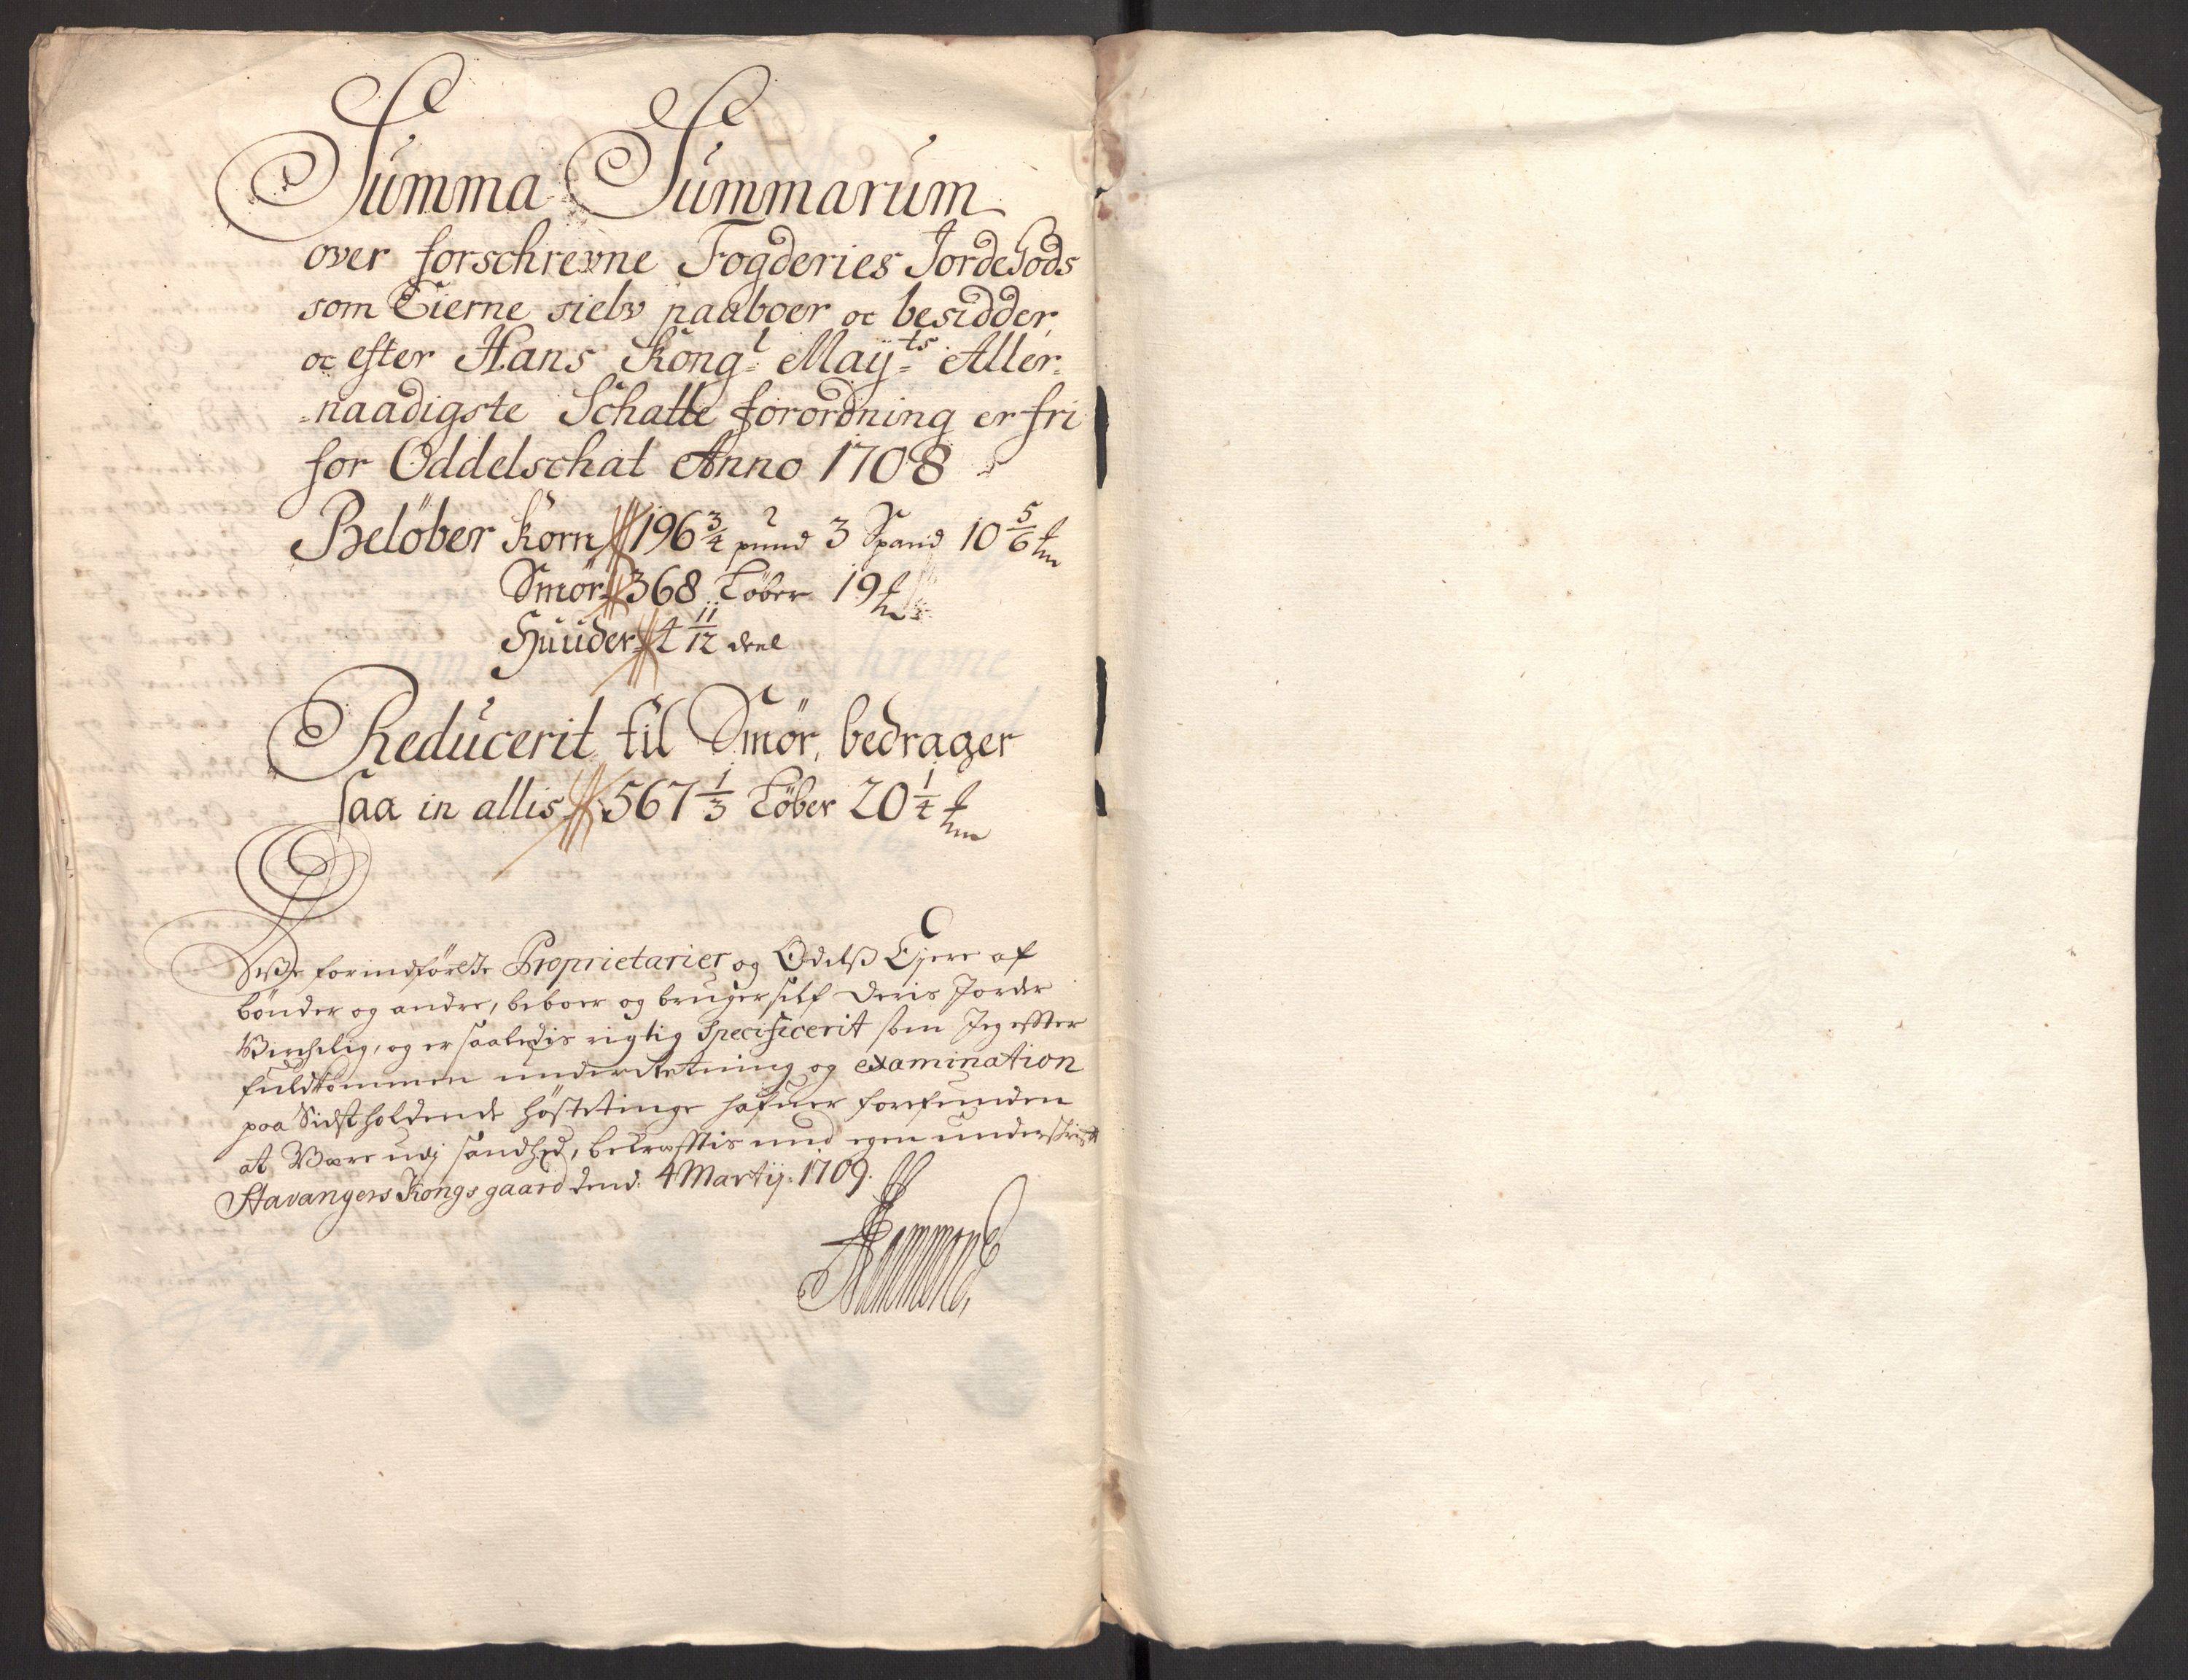 Summa Summarum
over forschrevne Fogderies JordeGods
som Eierne sielv paaboer oc besidder,
oc efter Hans Kongl: Maÿts: Aller=
=naadigste Schatte forordning er fri
for Oddelschat Anno 1708
Beløber Korn 196 3/4 pund 3 Spand 10 5/6
Smør 368 Løber 19
Huuder 4 11/12 deel
Reducerit til Smør, bedrager
saa in allis 567 1/3 Løber 20 1/4
Disse forindførte Proprietarier og Odelss Ejere af
bønder og andre, beboer og bruger self deris Jorder
Virchelig, og er saaledis rigtig Specificerit som Jeg effter
fuldkommen underretning og examination
paa Sidstholdende høstetinge hafuer forefunden
at Være udj sandhed, bekræfftis med egen underschrift
Stavangers Kongsgaard dend: 4 Martij: 1709.